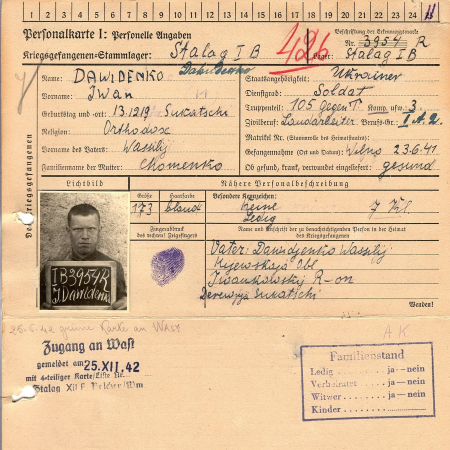 1 2 3 4 5 6 7 8 9 10 11 12 13 14 15 16 17 18 19 20 21 22 23 24
Personalkarte I: Personelle Angaben
Beschriftung der Erkennungsmarke
Nr. 3954 R
Kriegsgefangenen-Stammlager: Stalag I B
Lager: Stalag I B
Des Kriegsgefangenen
Name: DAWIDENKO
Staatsangehörigkeit: Ukrainer
Vorname: IWAN
Dienstgrad: Soldat
Geburtstag und -ort: 13.1219 Sukatschi
Truppenteil: 105 Gegen T Komp. usw. 3.
Religion: Orthodox
Zivilberuf: Landarbeiter Berufs-Gr.: I A. 2
Vorname des Vaters: Wassilij
Matrikel Nr. (Stammrolle des Heimatstaates):
Gefangennahme (Ort und Datum): Wilno 23.6.41
Familienname der Mutter: Chomenko
Ob gesund, krank, verwundet eingeliefert: gesund
Lichtbild
Nähere Personalbeschreibung
Größe
Haarfarbe
Besondere Kennzeichen:
173
blond
keine
7 Kl
Ledig
Fingerabdruck
des rechten! Zeigefingers
Name und Anschrift der zu benachrichtigenden Person in der Heimat
des Kriegsgefangenen
IB3954R
J Dawidenko
Vater: Dawidjenko Wassilij
Kijewskaja Obl
Iwankowskij R-on
Derewnja Sukatschi
Wenden!
grüne Karte an WASt
AK
Zugang an Wast
gemeldet am 25. XII. 42
mit 4-teiliger Karte/Liste Nr.
Stalag
Familienstand
Ledig ja — nein
Verheiratet ja — nein
Witwer ja — nein
Kinder